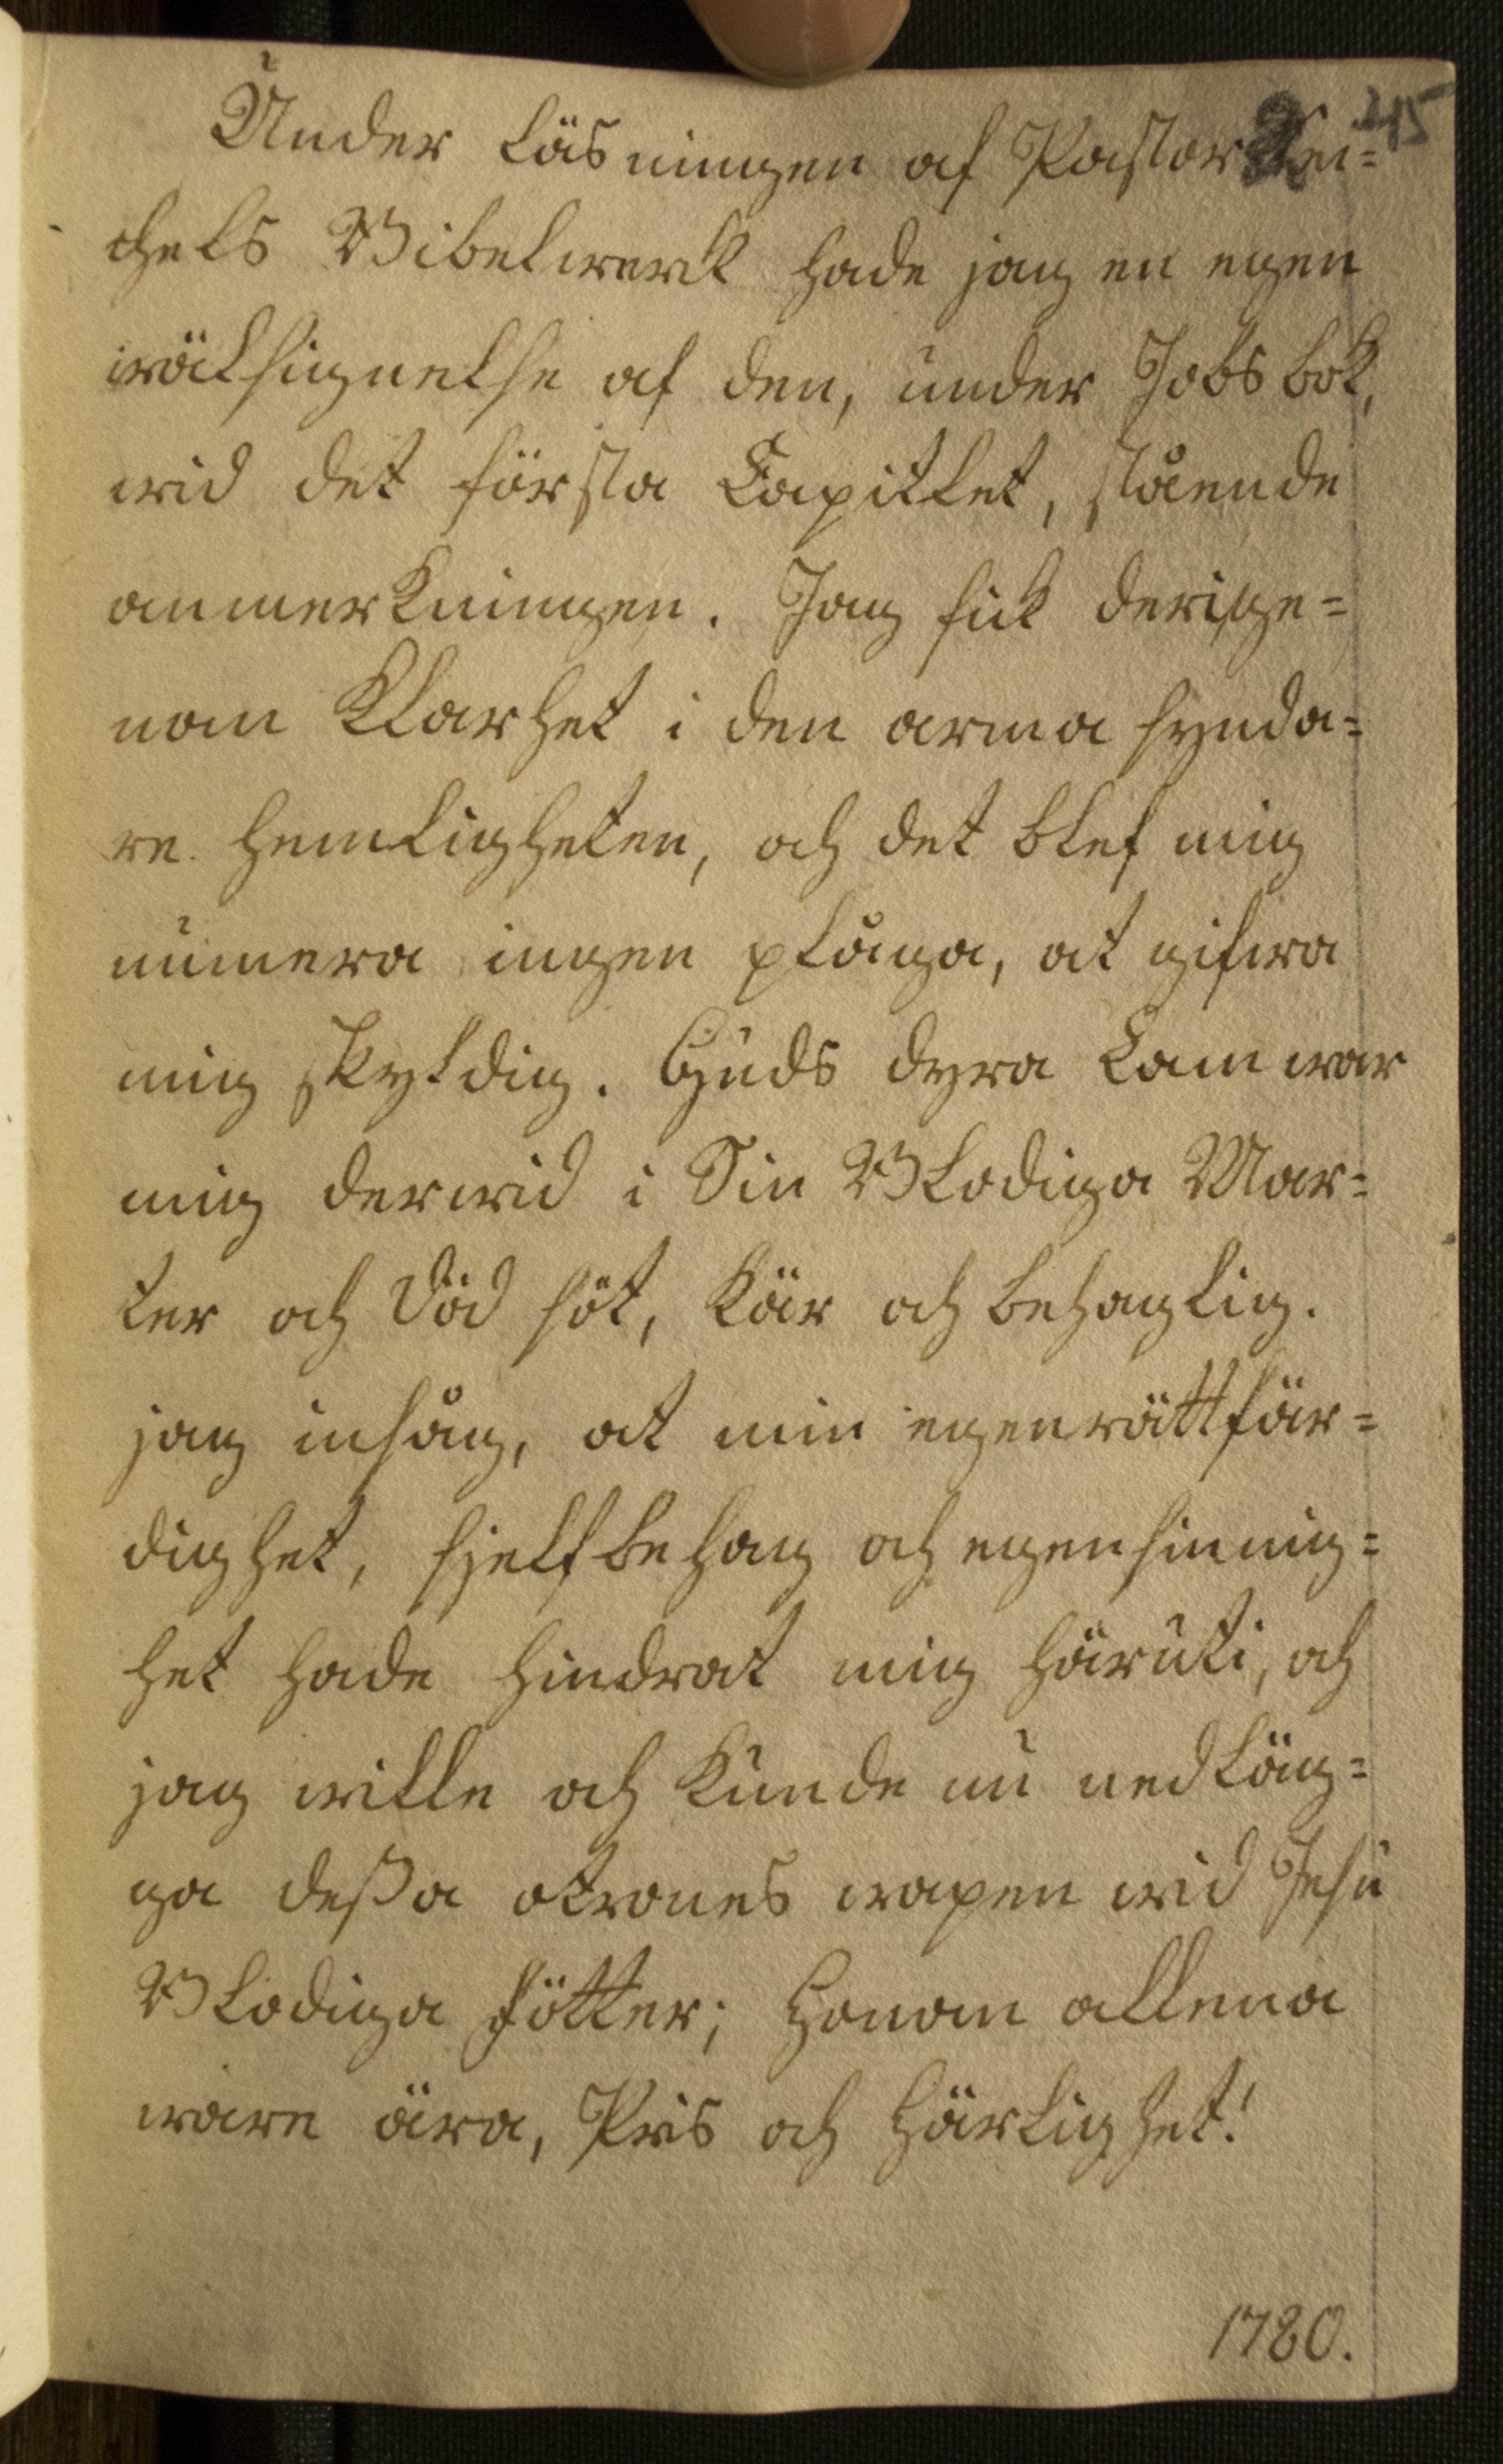 215
Under läsningen af Pastor Rei=
chels Bibelwerk hade jag en egen
wälsignelse af den, under Jobs bok,
wid det första Capitlet, stående
anmerkningen. Jag fick derige=
nom Klarhet i den arma synda=
re hemligheten, och det blef mig
numera ingen plåga, at gifwa
mig skyldig. Guds dyra Lam war
mig derwid i Sin Blodiga Mar=
ter och Död söt, kär och behaglig.
jag insåg, at min egenrättfär=
dighet, sjelfbehag och egensinnig=
het hade hindrat mig häruti, och
jag wille och kunde nu nedläg=
ga deßa otrones wapen wid Jesu
Blodiga fötter; Honom allena
ware ära, Pris och Härlighet!
1780.